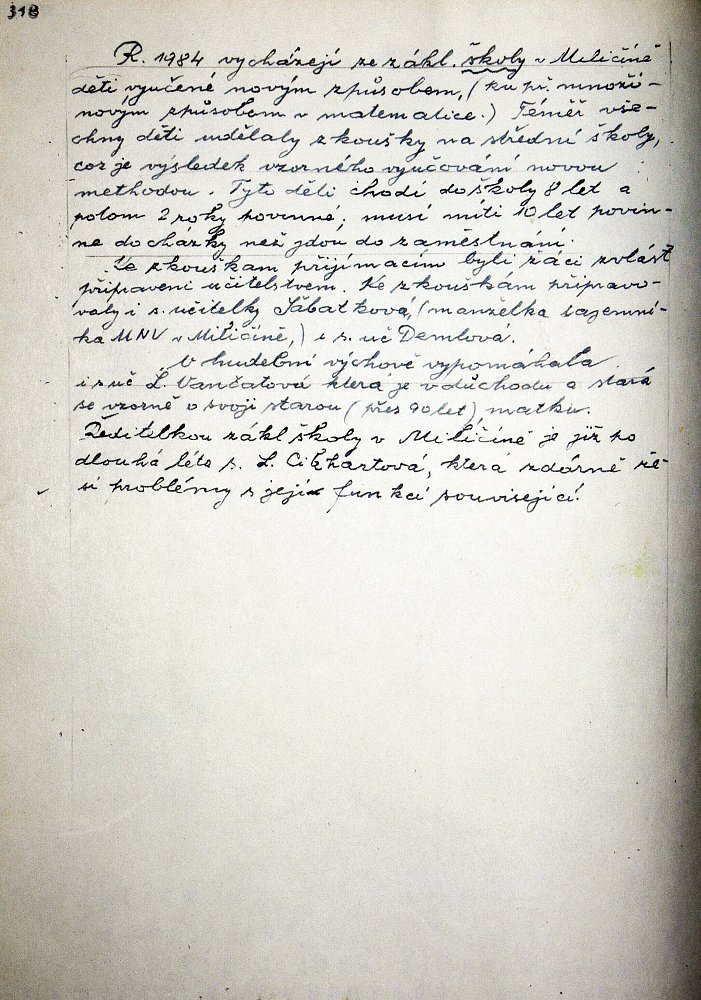 318
R. 1984 vycházejí ze zákl. školy v Miličíně
děti vyučené novým způsobem, (ku př. množi-
novým způsobem v matematice.) Téměř vše-
chny děti udělaly zkoušky na střední školy,
což je výsledek vzorného vyučování novou
methodou. Tyto děti chodí do školy 8 let a
potom 2 roky povinné; musí míti 10 let povin-
né docházky než jdou do zaměstnání.
Ke zkouškám přijímacím byli žáci zvlášť
připraveni učitelstvem. Ke zkouškám připravo-
valy i s. učitelky Sábatková, (manželka tajemní-
ka MNV v Miličíně,) i s. uč Demlová.
V hudební výchově vypomáhala
i s uč L. Vančatová která je v důchodu a stará
se vzorně o svoji starou (přes 90 let) matku.
Ředitelkou zákl školy v Miličíně je již po
dlouhá léta s. L. Cibhartová, která zdárně ře-
si problémy s její funkcí související.